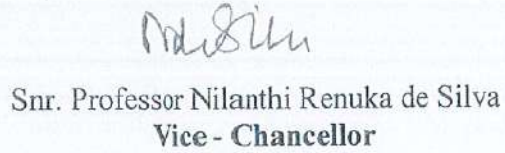 Snr. Professor Nilanthi Renuka de Silva
Vice - Chancellor